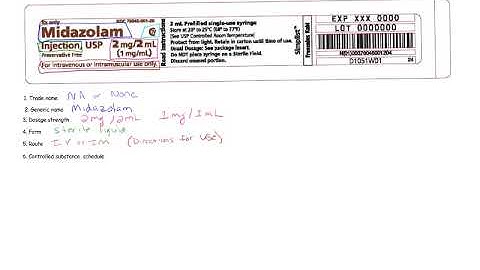 Rx only
Midazolam
Injection, USP
2 mg/2 mL
(1 mg/mL)
Preservative Free
For intravenous or intramuscular use only.
Read Instructions
2 mL Prefilled single-use syringe
Store at 20° to 25°C (68° to 77°F)
[See USP Controlled Room Temperature]
Protect from light. Retain in carton until time of use.
Usual Dosage: See package insert.
Do NOT place syringe on a Sterile Field.
Discard unused portion.
Simplist™
Fresenius Kabi
EXP XXX 0000
LOT 0000000
D1051W01
1. Trade name NA or None
2. Generic name Midazolam
3. Dosage strength 2mg/2mL 1mg/1mL
4. Form Sterile liquid
5. Route IV or IM (Directions for use)
6. Controlled substance schedule